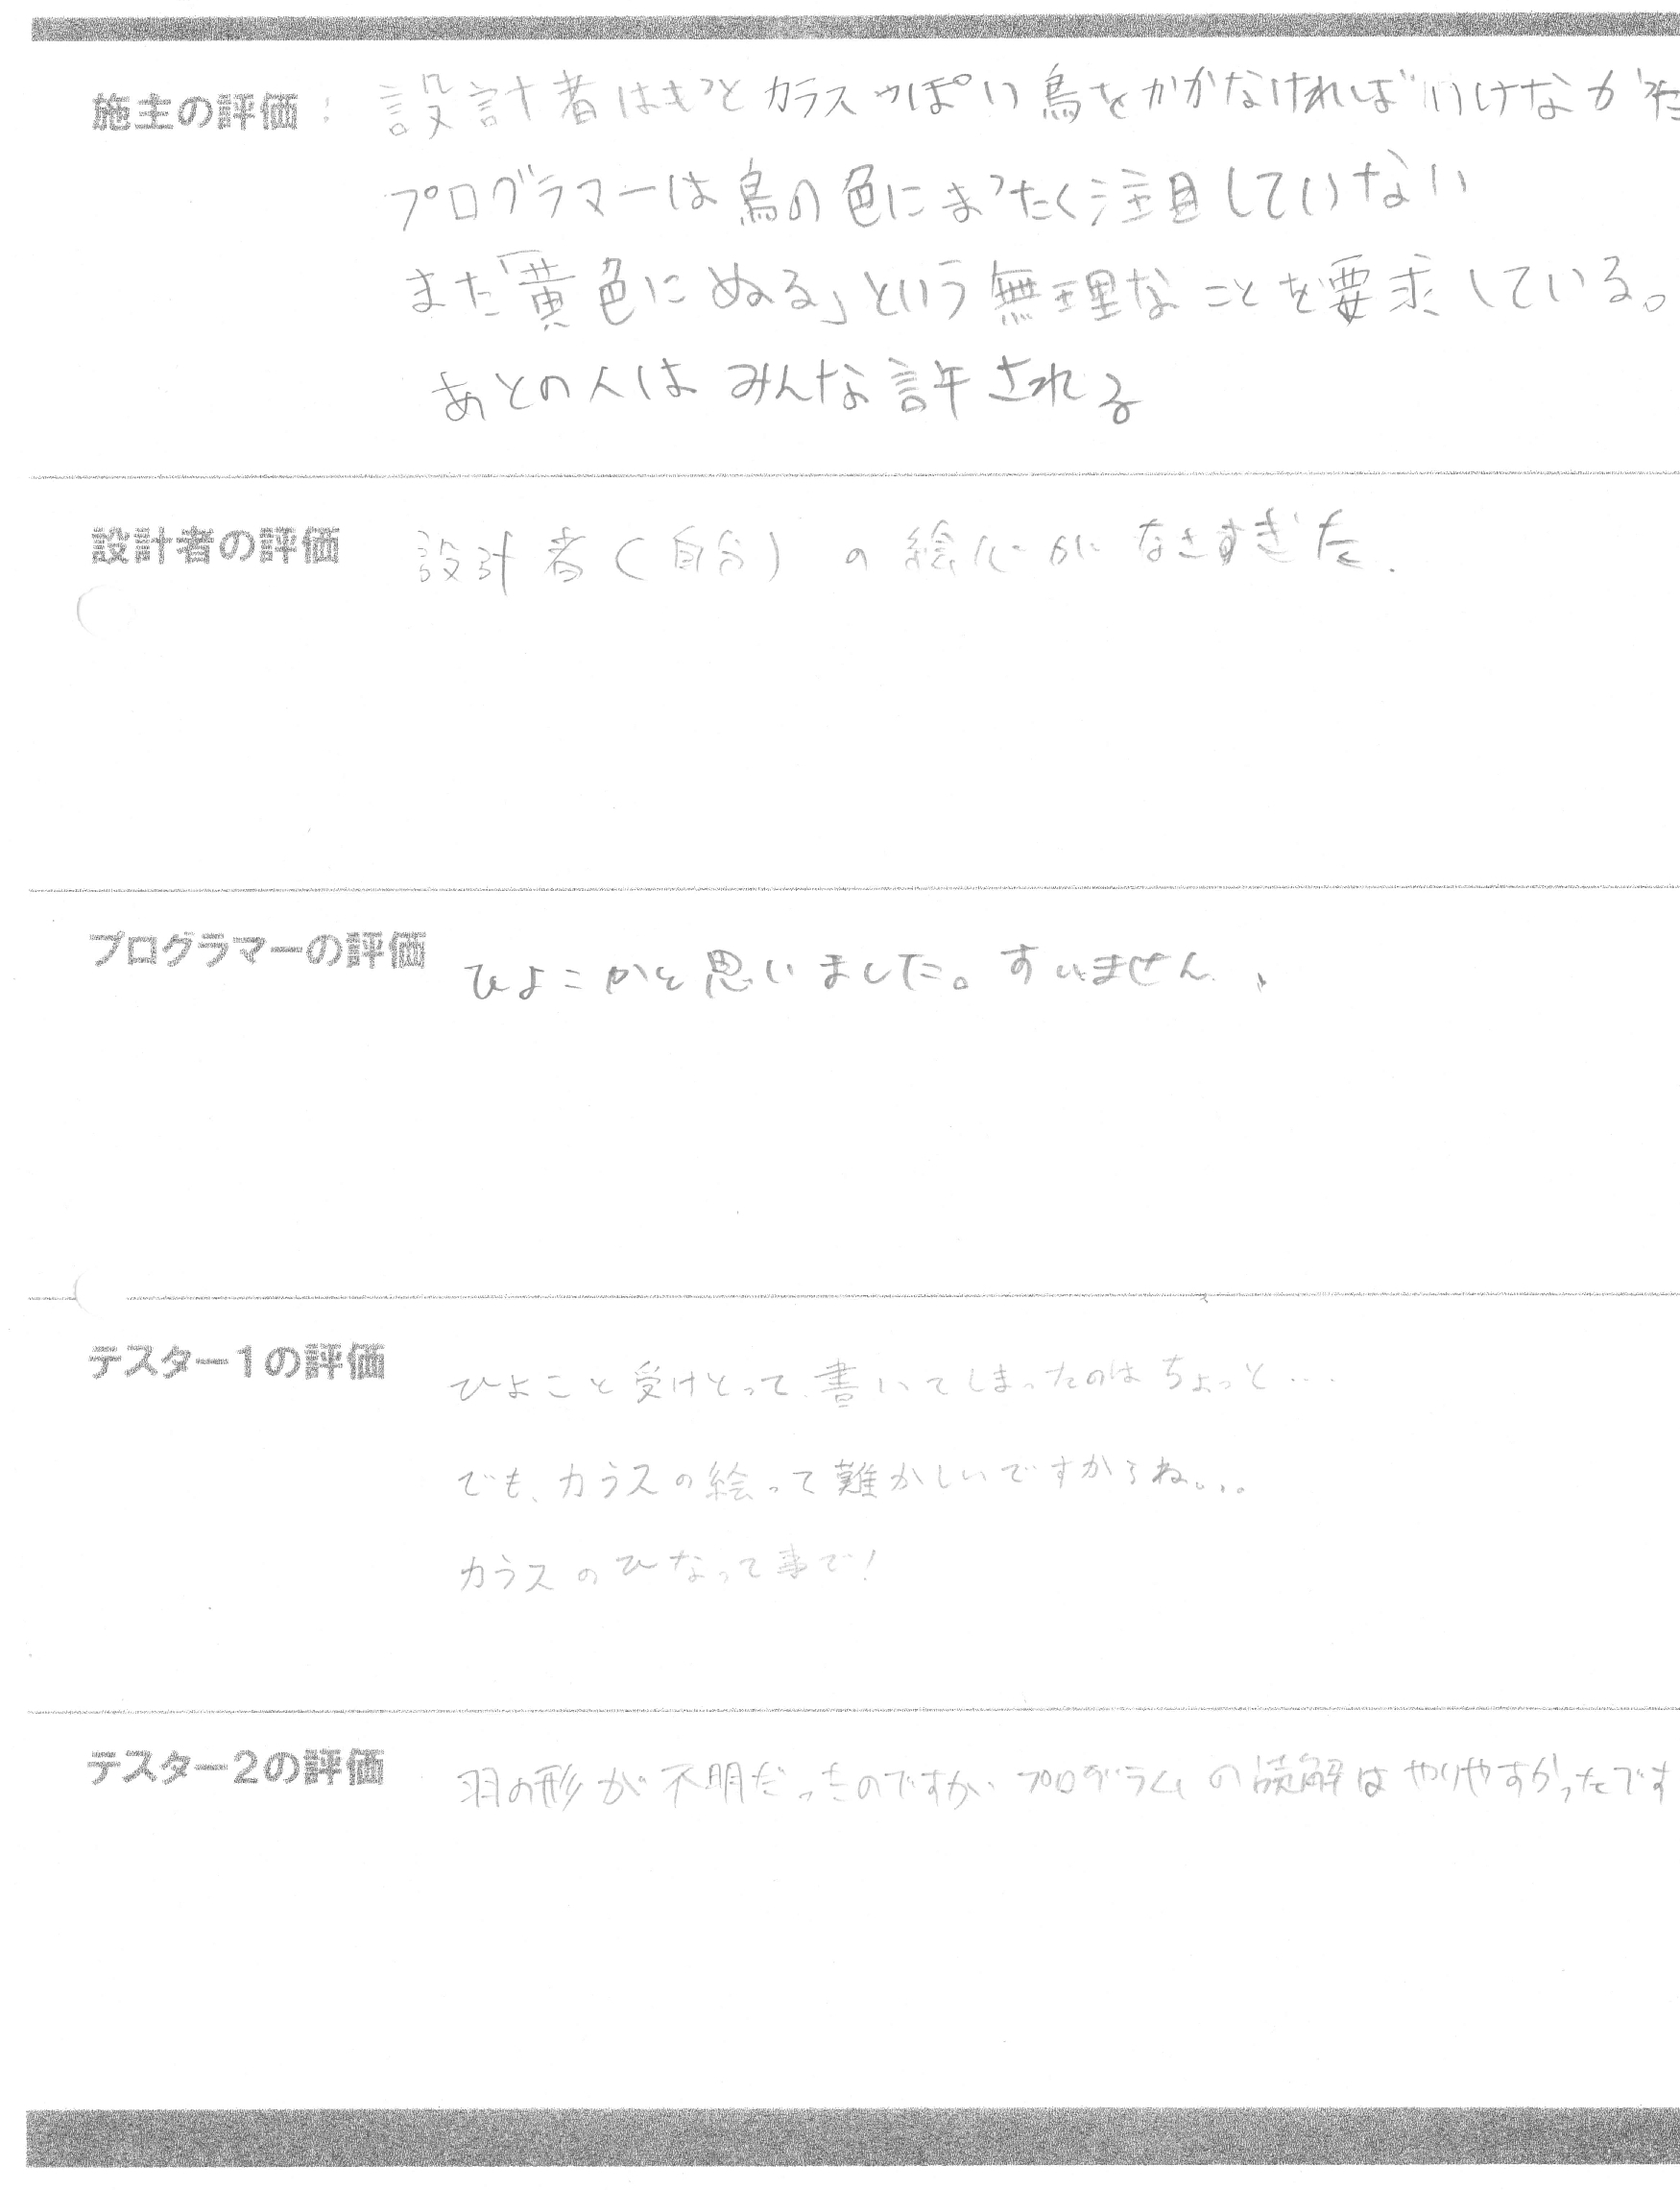 施主の評価： 設計者はもっとカラスっぽい鳥をかかなければいけなかった
プログラマーは鳥の色にまったく注目していない
また「黄色にぬる」という無理なことを要求している。
あとの人はみんな許される
設計者の評価 設計者（自分）の絵 なさすぎた.
プログラマーの評価 ひよこかと思いました。すいません、
テスター1の評価 ひよこと受けとって、書いてしまったのはちょっと‥‥
でも、カラスの絵って難かしいですからね...。
カラスのひなって事で！
テスター2の評価 羽の形が不明だったのですが、プログラムの読解はやりやすかったです